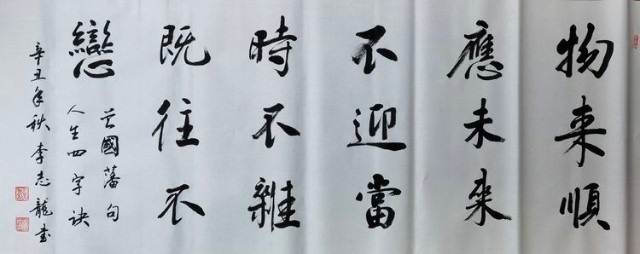 物来順
應未来
不迎當
時不雜
既往不
戀
曾國藩句
人生四字诀
辛丑年秋李志龍書